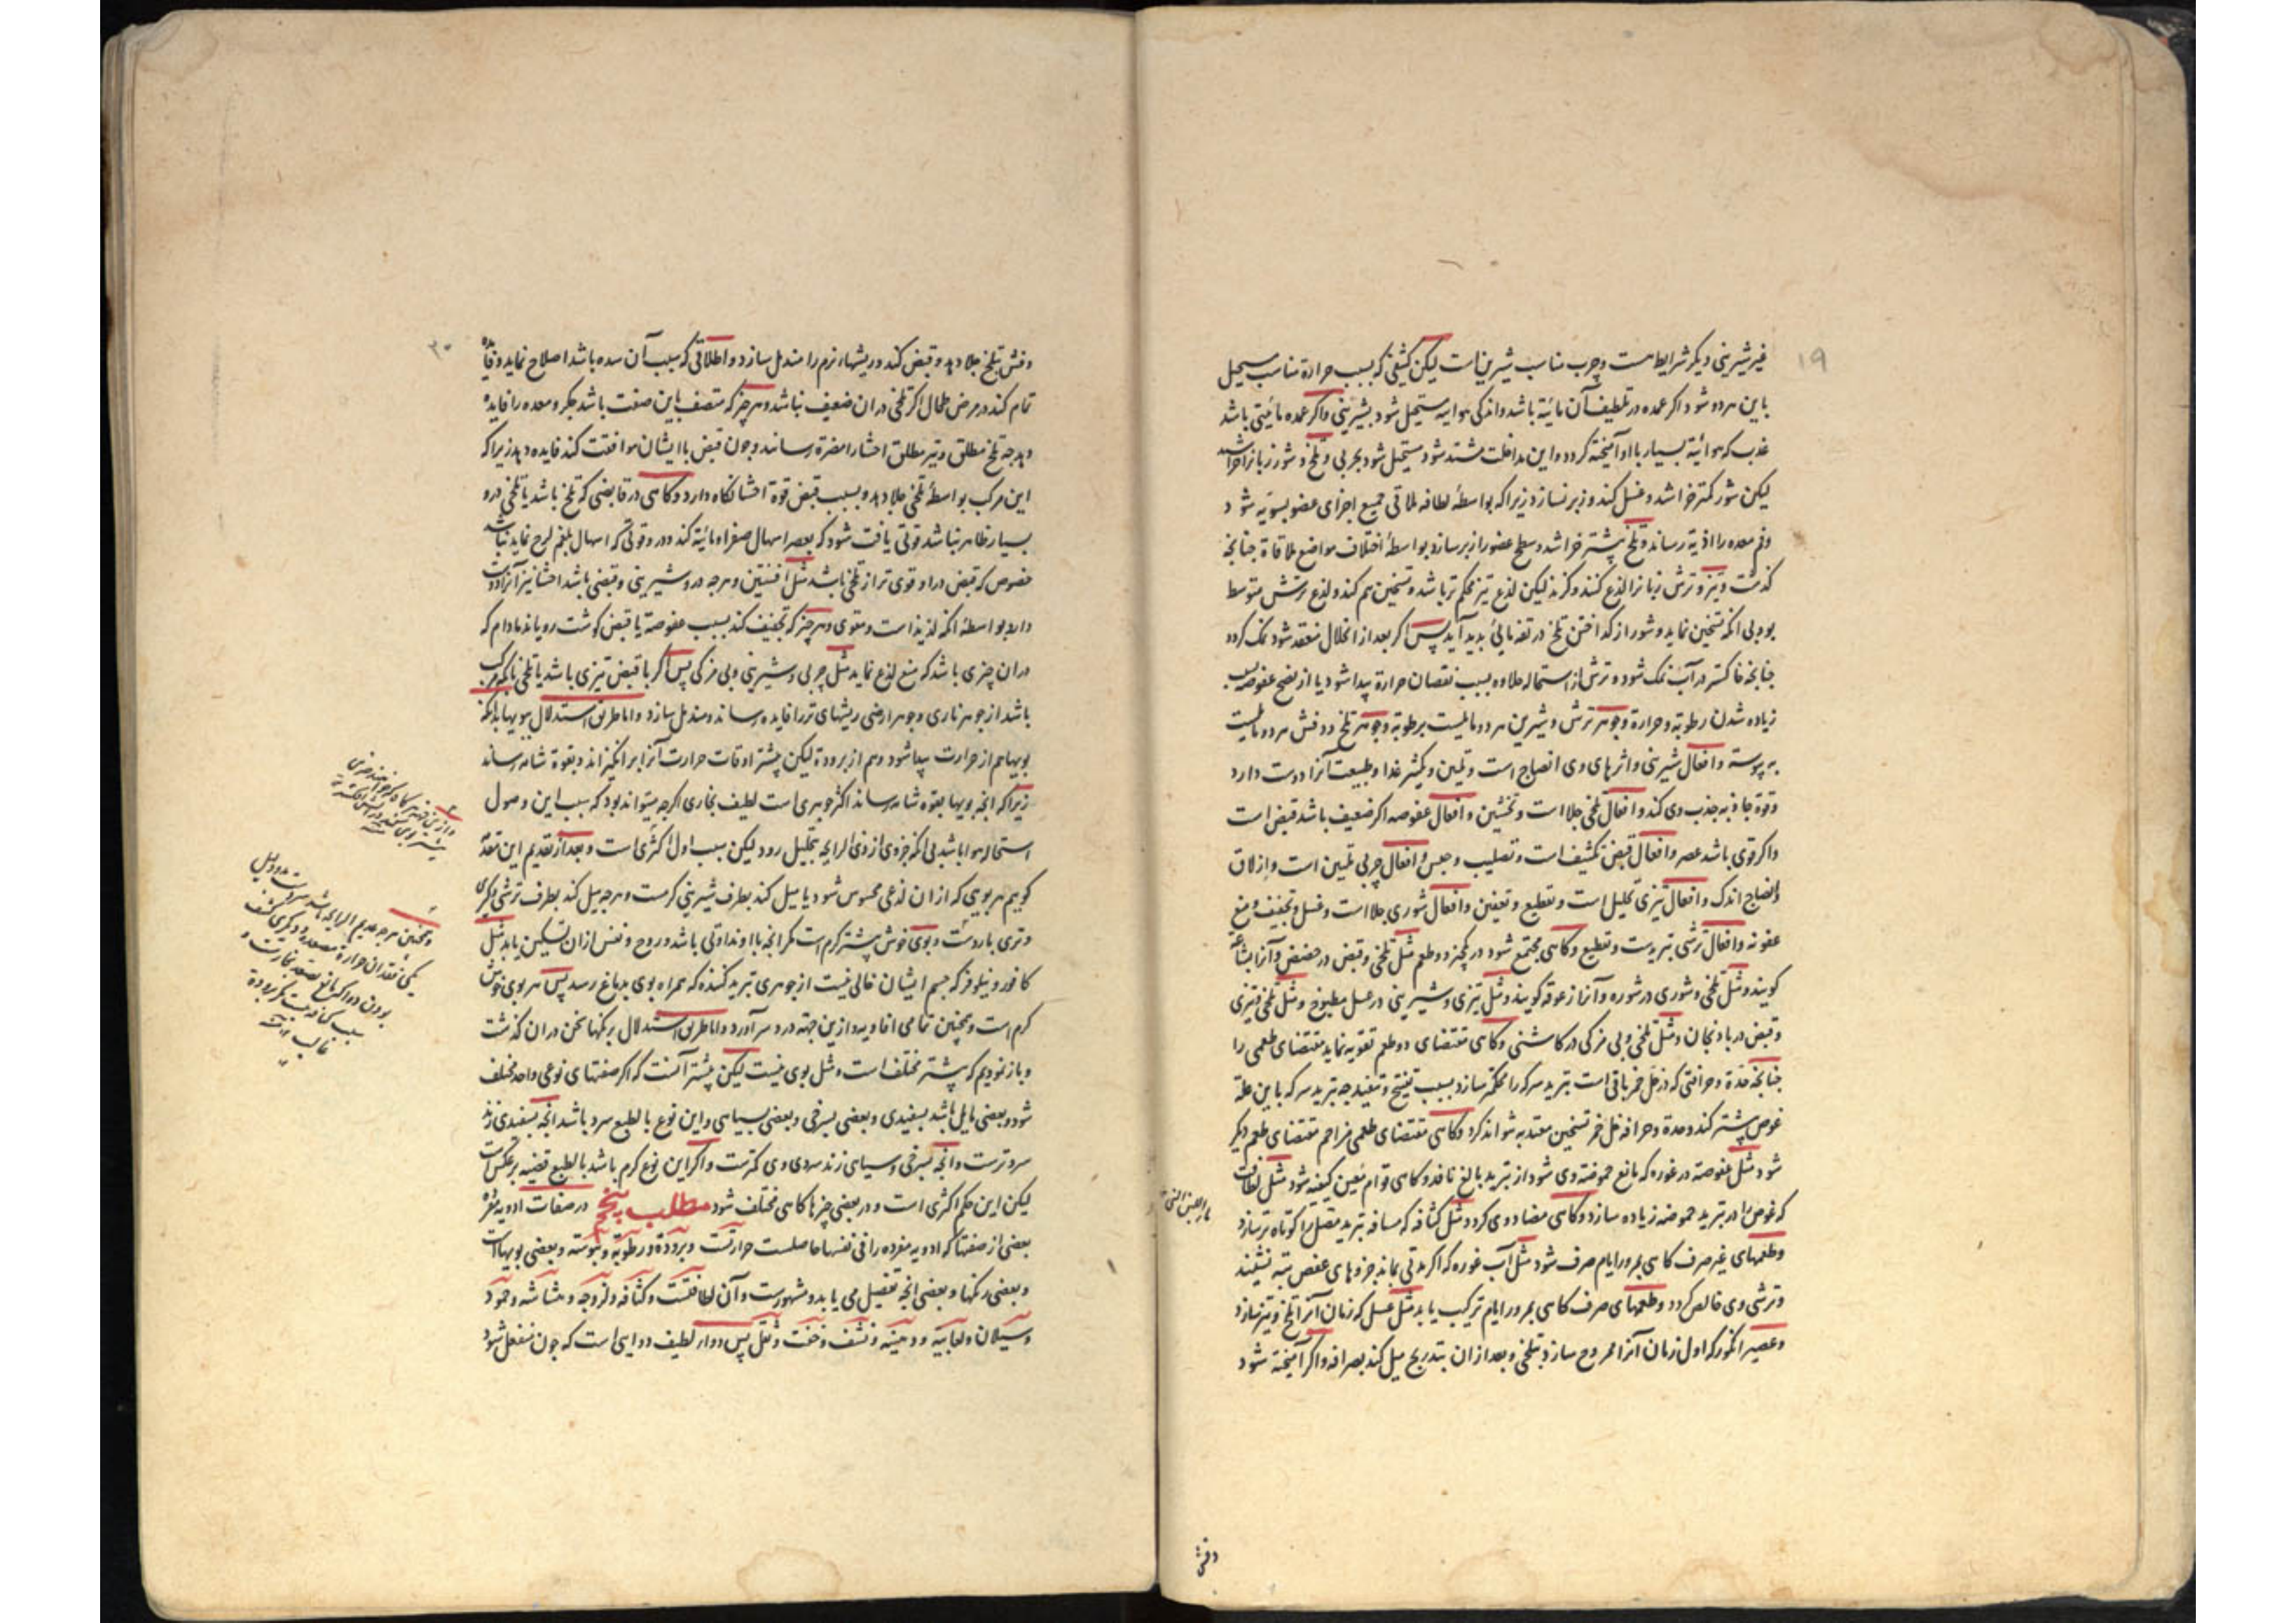 ۱۹
غیر شیرینی دیگر شرایط هست و چرب مناسب شیرین است لیکن کثیفی که بسبب حرارة مناسب مستحیل
باین هر دو شود اگر عمده در تلطیف آن مائیة باشد و اندکی هوائیه مستحیل شود بشیرینی و اگر عمده مائیتی باشد
عذب که هوائیة بسیار با او آمیخته گردد و این مداخلت مشتد شود مستحیل شود بچربی و تلخ و شور زبانرا خراشند
لیکن شور کمتر خراشد و غسل کند و زبر نسازد زیرا که بواسطهٔ لطافه ملاقی جمیع اجزای عضو بسویه شود
و فم معده را اذیة رساند و تلخ بیشتر خراشد و سطح عضو را زبر سازد بواسطهٔ اختلاف مواضع ملاقاة چنانچه
گذشت و تیز و ترش زبانرا لذع کنند و گزند لیکن لذع تیز محکم تر باشد و تسخین هم کند و لذع ترش متوسط
بود بی انکه تسخین نماید و شور از گداختن تلخ در تفه مائی بدید آید پس اگر بعد از انحلال منعقد شود نمک گردد
چنانچه خاکستر در آب نمک شود و ترش از استحاله حلاوه بسبب نقصان حرارة پیدا شود یا از نضج عفوصه بسبب
زیاده شدن رطوبة و حرارة و جوهر ترش و شیرین هر دو مایلست برطوبة و جوهر تلخ و عفص هر دو مایلست
به یبوسته و افعال شیرینی و اثرهای وی انضاج است و تلیین و تکثیر غذا و طبیعت آنرا دوست دارد
و قوة جاذبه جذب وی کند و افعال تلخی جلا است و تخشین و افعال عفوصه اگر ضعیف باشد قبض است
و اگر قوی باشد عصر و افعال قبض تکثیف است و تصلیب و حبس و افعال چربی تلیین است و ازلاق
و انضاج اندک و افعال تیزی تحلیل است و تقطیع و تعفین و افعال شوری جلا است و غسل و تجفیف و منع
عفونه و افعال ترشی تبریدست و تقطیع و گاهی مجتمع شود در یکچیز دو طعم مثل تلخی و قبض در حضض و آنرا بشاعة
گویند و مثل تلخی و شوری در شوره و آنرا زعوقه گویند و مثل تیزی و شیرینی در عسل مطبوخ و مثل تلخی و تیزی
و قبض در بادنجان و مثل تلخی و بی مزگی در کاسنی و گاهی مقتضای دو طعم تقویه نماید مقتضای طعمی را
چنانچه حدة و حرافتی که در خل خمر باقی است تبرید سرکه را محکمتر سازد بسبب تفتیح و تنفیذ چه تبرید سرکه باین علة
غوص بیشتر کند و حدة و حرافه خل خمر تسخین معتد به نتواند کرد و گاهی مقتضای طعمی مزاحم مقتضای طعم دیگر
شود مثل عفوصة در غوره که مانع حموضة وی شود از تبرید بالغ نافذ و گاهی قوام معین کیفیه شود مثل لطافت
که غوص را در تبرید حموضه زیاده سازد و گاهی مضاد وی گردد مثل کثافه که مسافه تبرید مصل را کوتاه تر سازد
و طعمهای غیر صرف گاهی بمرور ایام صرف شود مثل آب غوره که اگر مدتی بماند جزوهای عفص بته نشینند
و ترشی وی خالص گردد و طعمهای صرف گاهی بمرور ایام ترکیب یابد مثل عسل که زمان آنرا تلخ و تیز سازد
و عصیر انگور که اول زمان آنرا ممزوج سازد بتلخی و بعد از ان بتدریج میل کند بصرافه و اگر آمیخته شود
وعفص
۲۰
وعفص بتلخ جلا دهد و قبض کند و ریشهاء نرم را مندمل سازد و اطلاقی که سبب آن سده باشد اصلاح نماید و فایده
تمام کند در مرض طحال اگر تلخی در ان ضعیف نباشد و هر چیز که متصف باین صفت باشد جگر و معده را فایده
دهد چه تلخ مطلق و تیز مطلق احشا را مضرة رسانند و چون قبض با ایشان موافقت کند فایده دهد زیرا که
این مرکب بواسطهٔ تلخی جلا دهد و بسبب قبض قوة احشا نگاه دارد و گاهی در قابضی که تلخ باشد یا تلخی در و
بسیار ظاهر نباشد قوتی یافت شود که بعصر اسهال صفرا و مائیة کند و در و قوتی که اسهال بلغم لزج نماید نباشد
خصوص که قبض در او قوی تر از تلخی باشد مثل افسنتین و هر چه در و شیرینی و قبضی باشد احشا نیز آنرا دوست
دارد بواسطهٔ انکه لذیذ است و مقوی و هر چیز که تجفیف کند بسبب عفوصة یا قبض گوشت رویاند مادام که
در ان چیزی باشد که منع لذع نماید مثل چربی و شیرینی و بی مزگی پس اگر با قبض تیزی باشد یا تلخی تا که مرکب
باشد از جوهر ناری و جوهر ارضی ریشهای تر را فایده رساند و مندمل سازد و اما طریق استدلال ببویها بدانکه
بویها هم از حرارت پیدا شود و هم از برودة لیکن بیشتر اوقات حرارت آنرا برانگیزاند و بقوة شامه رساند
زیرا که انچه بویها بقوه شامه رساند اکثر جوهری است لطیف بخاری اگرچه میتواند بود که سبب این وصول
استحاله هوا باشد بی انکه جزوی از ذی الرایحه بتحلیل رود لیکن سبب اول اکثری است و بعد از تقدیم این مقدمه
گوییم هر بویی که از ان لذعی محسوس شود یا میل کند بطرف شیرینی گرمست و هر چه میل کند بطرف ترشی و کرجی
و تری باردست و بوی خوش بیشتر گرم است مگر انچه با او نداوتی باشد و روح و نفس از ان تسکین یابد مثل
کافور و نیلوفر که جسم ایشان خالی نیست از جوهری تبرید کننده که همراه بوی بدماغ رسد پس هر بوی خوش
گرم است و همچنین تمامی افاویه و ازین جهته درد سر آورد و اما طریق استدلال برنگها سخن در ان گذشت
و باز نمودیم که بیشتر مختلف است و مثل بوی نیست لیکن بیشتر آنست که اگر صفتهای نوعی واحد مختلف
شود و بعضی مایل باشد بسفیدی و بعضی بسرخی و بعضی بسیاهی و این نوع بالطبع سرد باشد انچه بسفیدی زند
سردترست و انچه بسرخی و سیاهی زند سردی وی کمترست و اگر این نوع گرم باشد بالطبع قضیه برعکس است
لیکن این حکم اکثری است و در بعضی چیزها گاهی مختلف شود مطلب پنجم در صفات ادویه مفرده
بعضی از صفتها که ادویه مفرده را فی نفسها حاصلست حرارتست و برودة و رطوبة و یبوسته و بعضی بویهااست
و بعضی رنگها و بعضی انچه تفصیل می یابد و مشهورست و آن لطافتست و کثافه و لزوجه و هشاشه و جمود
و سیلان و لعابیه و دهنیه و نشف و خفت و ثقل پس دواء لطیف دوایی است که چون منفعل شود
و همچنین هر چه عدیم الرایحه باشد
یکی فقدان حرارة مصعده و دیگری کثیف
بودن دوا که مانع تصعد بخارست و
غالب